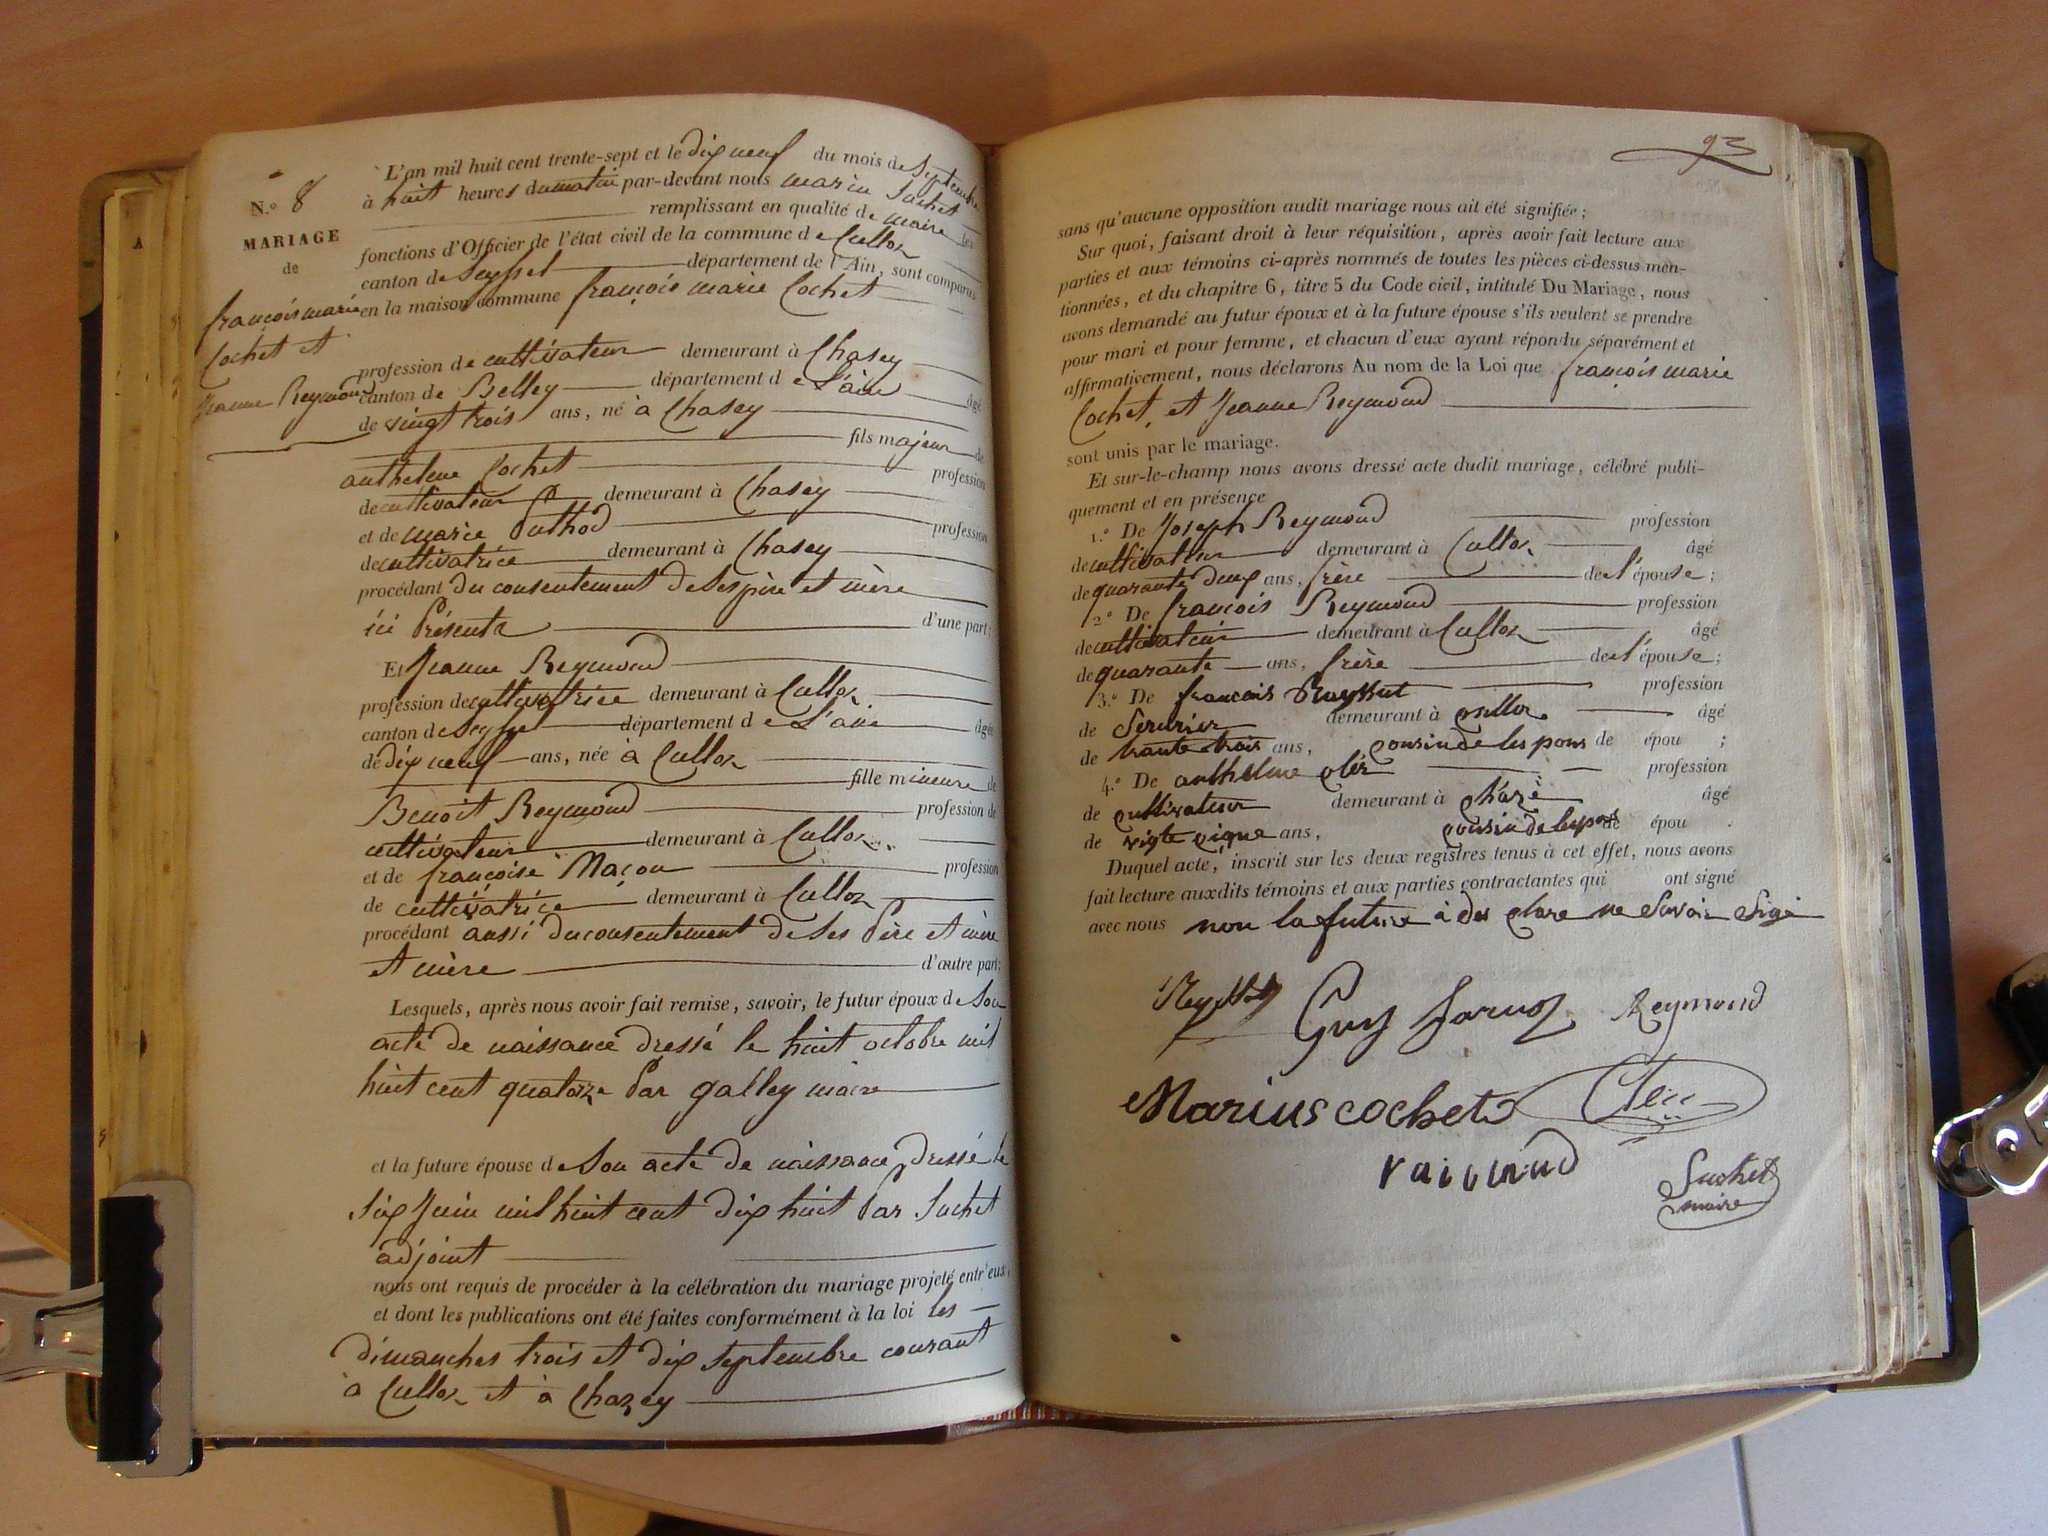 N.° 8
MARIAGE
de
françois marie
Cochet et
Jeanne Reymond
L'an mil huit cent trente-sept et le dix neuf du mois de Septembre
à huit heures du matin par-devant nous marin Suchet
remplissant en qualité de maire les
fonctions d'Officier de l'état civil de la commune de Culloz
canton de Seyssel département de l'Ain, sont comparus
en la maison commune françois marie Cochet
profession de cultivateur demeurant à Chasey
canton de Belley département de L'ain âgé
de vingt trois ans, né à Chasey
fils majeur de
anthelme Cochet profession
de cultivateur demeurant à Chasey
et de marie Puthod profession
de cultivatrice demeurant à Chasey
procédant du consentement de ses père et mère
ici Présents d'une part;
Et Jeanne Reymond
profession de cultivatrice demeurant à Culloz
canton de Seyssel département de L'ain âgée
de dix neuf ans, née à Culloz
fille mineure de
Benoit Reymond profession de
cultivateur demeurant à Culloz
et de françoise Maçon profession
de cultivatrice demeurant à Culloz
procédant aussi du consentement de ses Père et mère
et mère d'autre part;
Lesquels, après nous avoir fait remise, savoir, le futur époux de Son
acte de naissance dressé le huit octobre mil
huit cent quatorze Par galley maire
et la future épouse de Son acte de naissance dressé le
Six Juin mil huit cent dix huit Par Suchet
adjoint
nous ont requis de procéder à la célébration du mariage projeté entr'eux,
et dont les publications ont été faites conformément à la loi les
dimanches trois et dix septembre courant
à Culloz et à Chazey
93
sans qu'aucune opposition audit mariage nous ait été signifiée;
Sur quoi, faisant droit à leur réquisition, après avoir fait lecture aux
parties et aux témoins ci-après nommés de toutes les pièces ci-dessus men-
tionnées, et du chapitre 6, titre 5 du Code civil, intitulé Du Mariage, nous
avons demandé au futur époux et à la future épouse s'ils veulent se prendre
pour mari et pour femme, et chacun d'eux ayant répondu séparément et
affirmativement, nous déclarons Au nom de la Loi que françois marie
Cochet, et Jeanne Reymond
sont unis par le mariage.
Et sur-le-champ nous avons dressé acte dudit mariage, célébré publi-
quement et en présence
1.° De Joseph Reymond profession
de cultivateur demeurant à Culloz âgé
de quarante deux ans, frère de l'épouse;
2.° De françois Reymond profession
de cultivateur demeurant à Culloz âgé
de quarante ans, frère de l'épouse;
3.° De francois profession
de Serurier demeurant à âgé
de trante trois ans, cousin de les pous de épou ;
4.° De anthelme profession
de cultivateur demeurant à âgé
de vigte cique ans, cousin de lespous de épou .
Duquel acte, inscrit sur les deux registres tenus à cet effet, nous avons
fait lecture auxdits témoins et aux parties contractantes qui ont signé
avec nous non la future à des clare ne Savoir Sigé
Guy Reymond
Marius cochet
Suchet
maire